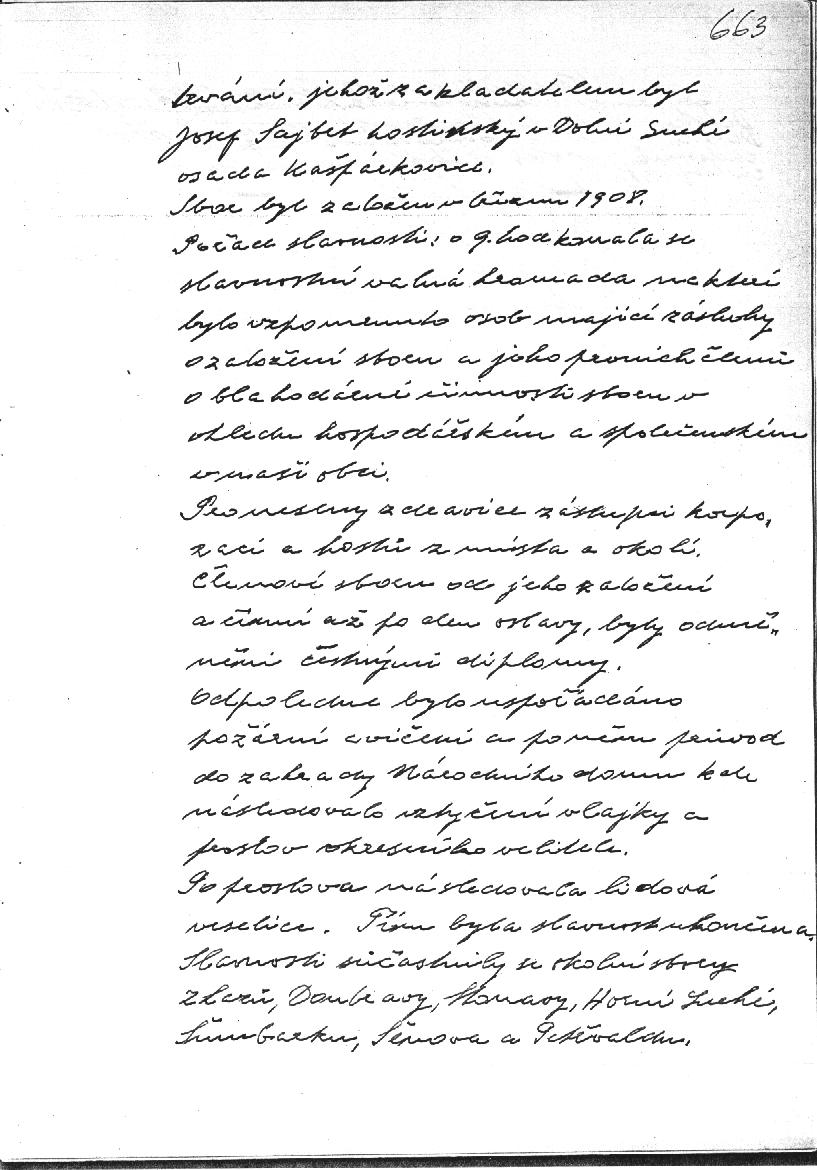 663
trvání. jehož zakladatelem byl
Josef Sajbet hostinský v Dolní Suché
osada Kašpárkovice.
Sbor byl založen v březnu 1908.
Pořad slavnosti: o 9. hod konala se
slavnostní valná hromada na kteří
bylo vzpomenuto osob mající zásluhy
o založení sboru a jeho prvních členů
o blahodárné činnosti sboru v
ohledu hospodářském a společenském
v naší obci.
Proneseny zdravice zástupci korpo„
rací a hostů z místa a okolí.
Členové sboru od jeho založení
a činní až po den oslavy, byly odmě„
něni čestnými diplomy.
Odpoledne bylo uspořádáno
požární cvičení a po něm průvod
do zahrady Národního domu kde
následovalo vztyčení vlajky a
proslov okresního velitele.
Po proslova následovala lidová
veselice. Tím byla slavnost ukončena.
Slavnosti súčastnily se okolní sbory
z Lazů, Doubravy, Stonavy, Horní Suché,
Šumbarku, Šenova a Petřvaldu.